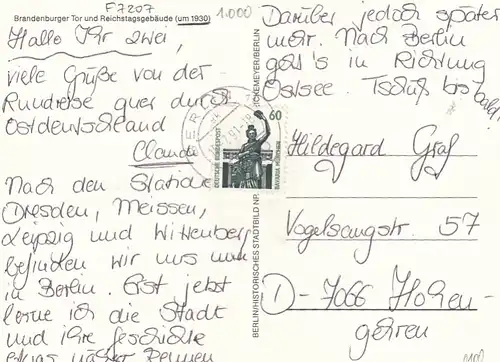 F7207
1.000
Brandenburger Tor und Reichstagsgebäude (um 1930)
Hallo Ihr zwei,
viele Grüße von der
Rundreise quer durch
Ostdeutschland
Claudi
Nach den Stationen
Dresden, Meissen,
Leipzig und Wittenberg
befinden wir uns nun
in Berlin. Erst jetzt
lerne ich die Stadt
und ihre Geschichte
etwas näher kennen
Darüber jedoch später
mehr. Nach Berlin
geht's in Richtung
Ostsee. Tschüß bis bald!
BERLIN/HISTORISCHES STADTBILD NR.
KEMEYER/BERLIN
60
DEUTSCHE BUNDESPOST
BAVARIA MÜNCHEN
Hildegard Graf
Vogelsangstr. 57
D-7066 Hohen-
gehren